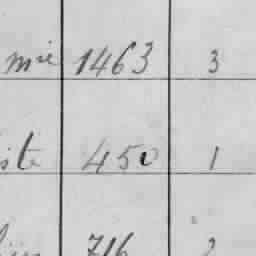 mie 1463 3
ste 450 1
716 2